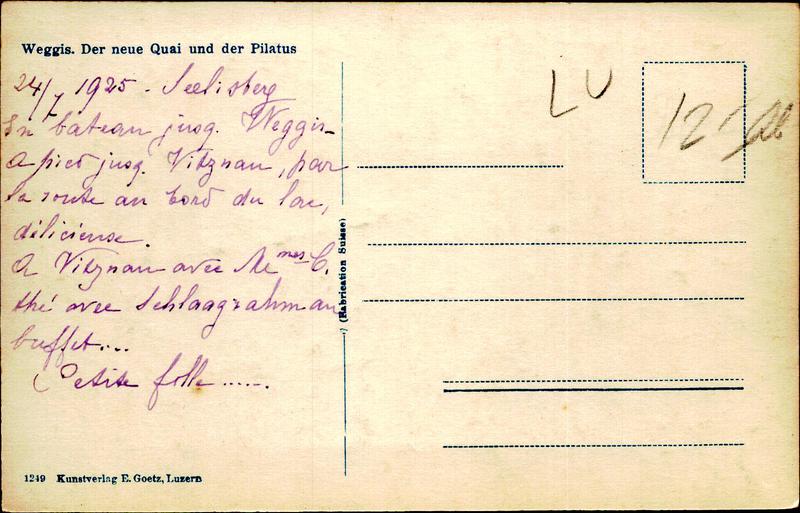 Weggis. Der neue Quai und der Pilatus
24/7 1925 - Seelisberg
En bateau jusq. Weggis -
A pied jusq. Vitznau, par
la route au bord du lac,
délicieuse.
A Vitznau avec Mmes C.
thé avec Schlaagrahm au
buffet....
Petite folle ......
(Fabrication Suisse)
LU
12.-
1249 Kunstverlag E. Goetz, Luzern